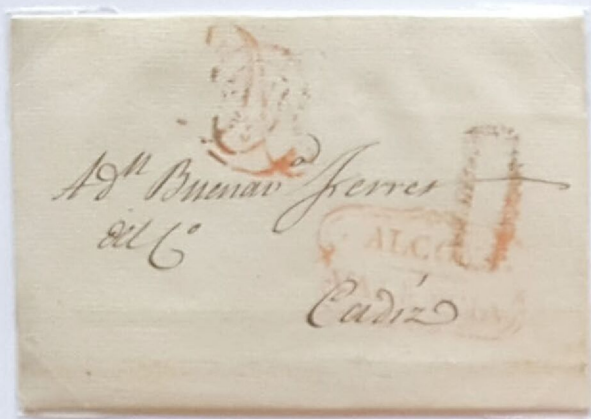 A dⁿ Buenavᵃ Ferrer
del Cº
ALCO
Cadiz